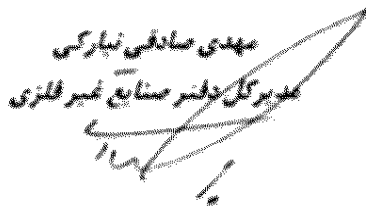 مهدی صادقی نیارکی
مدیرکل دفتر صنایع غیر فلزی